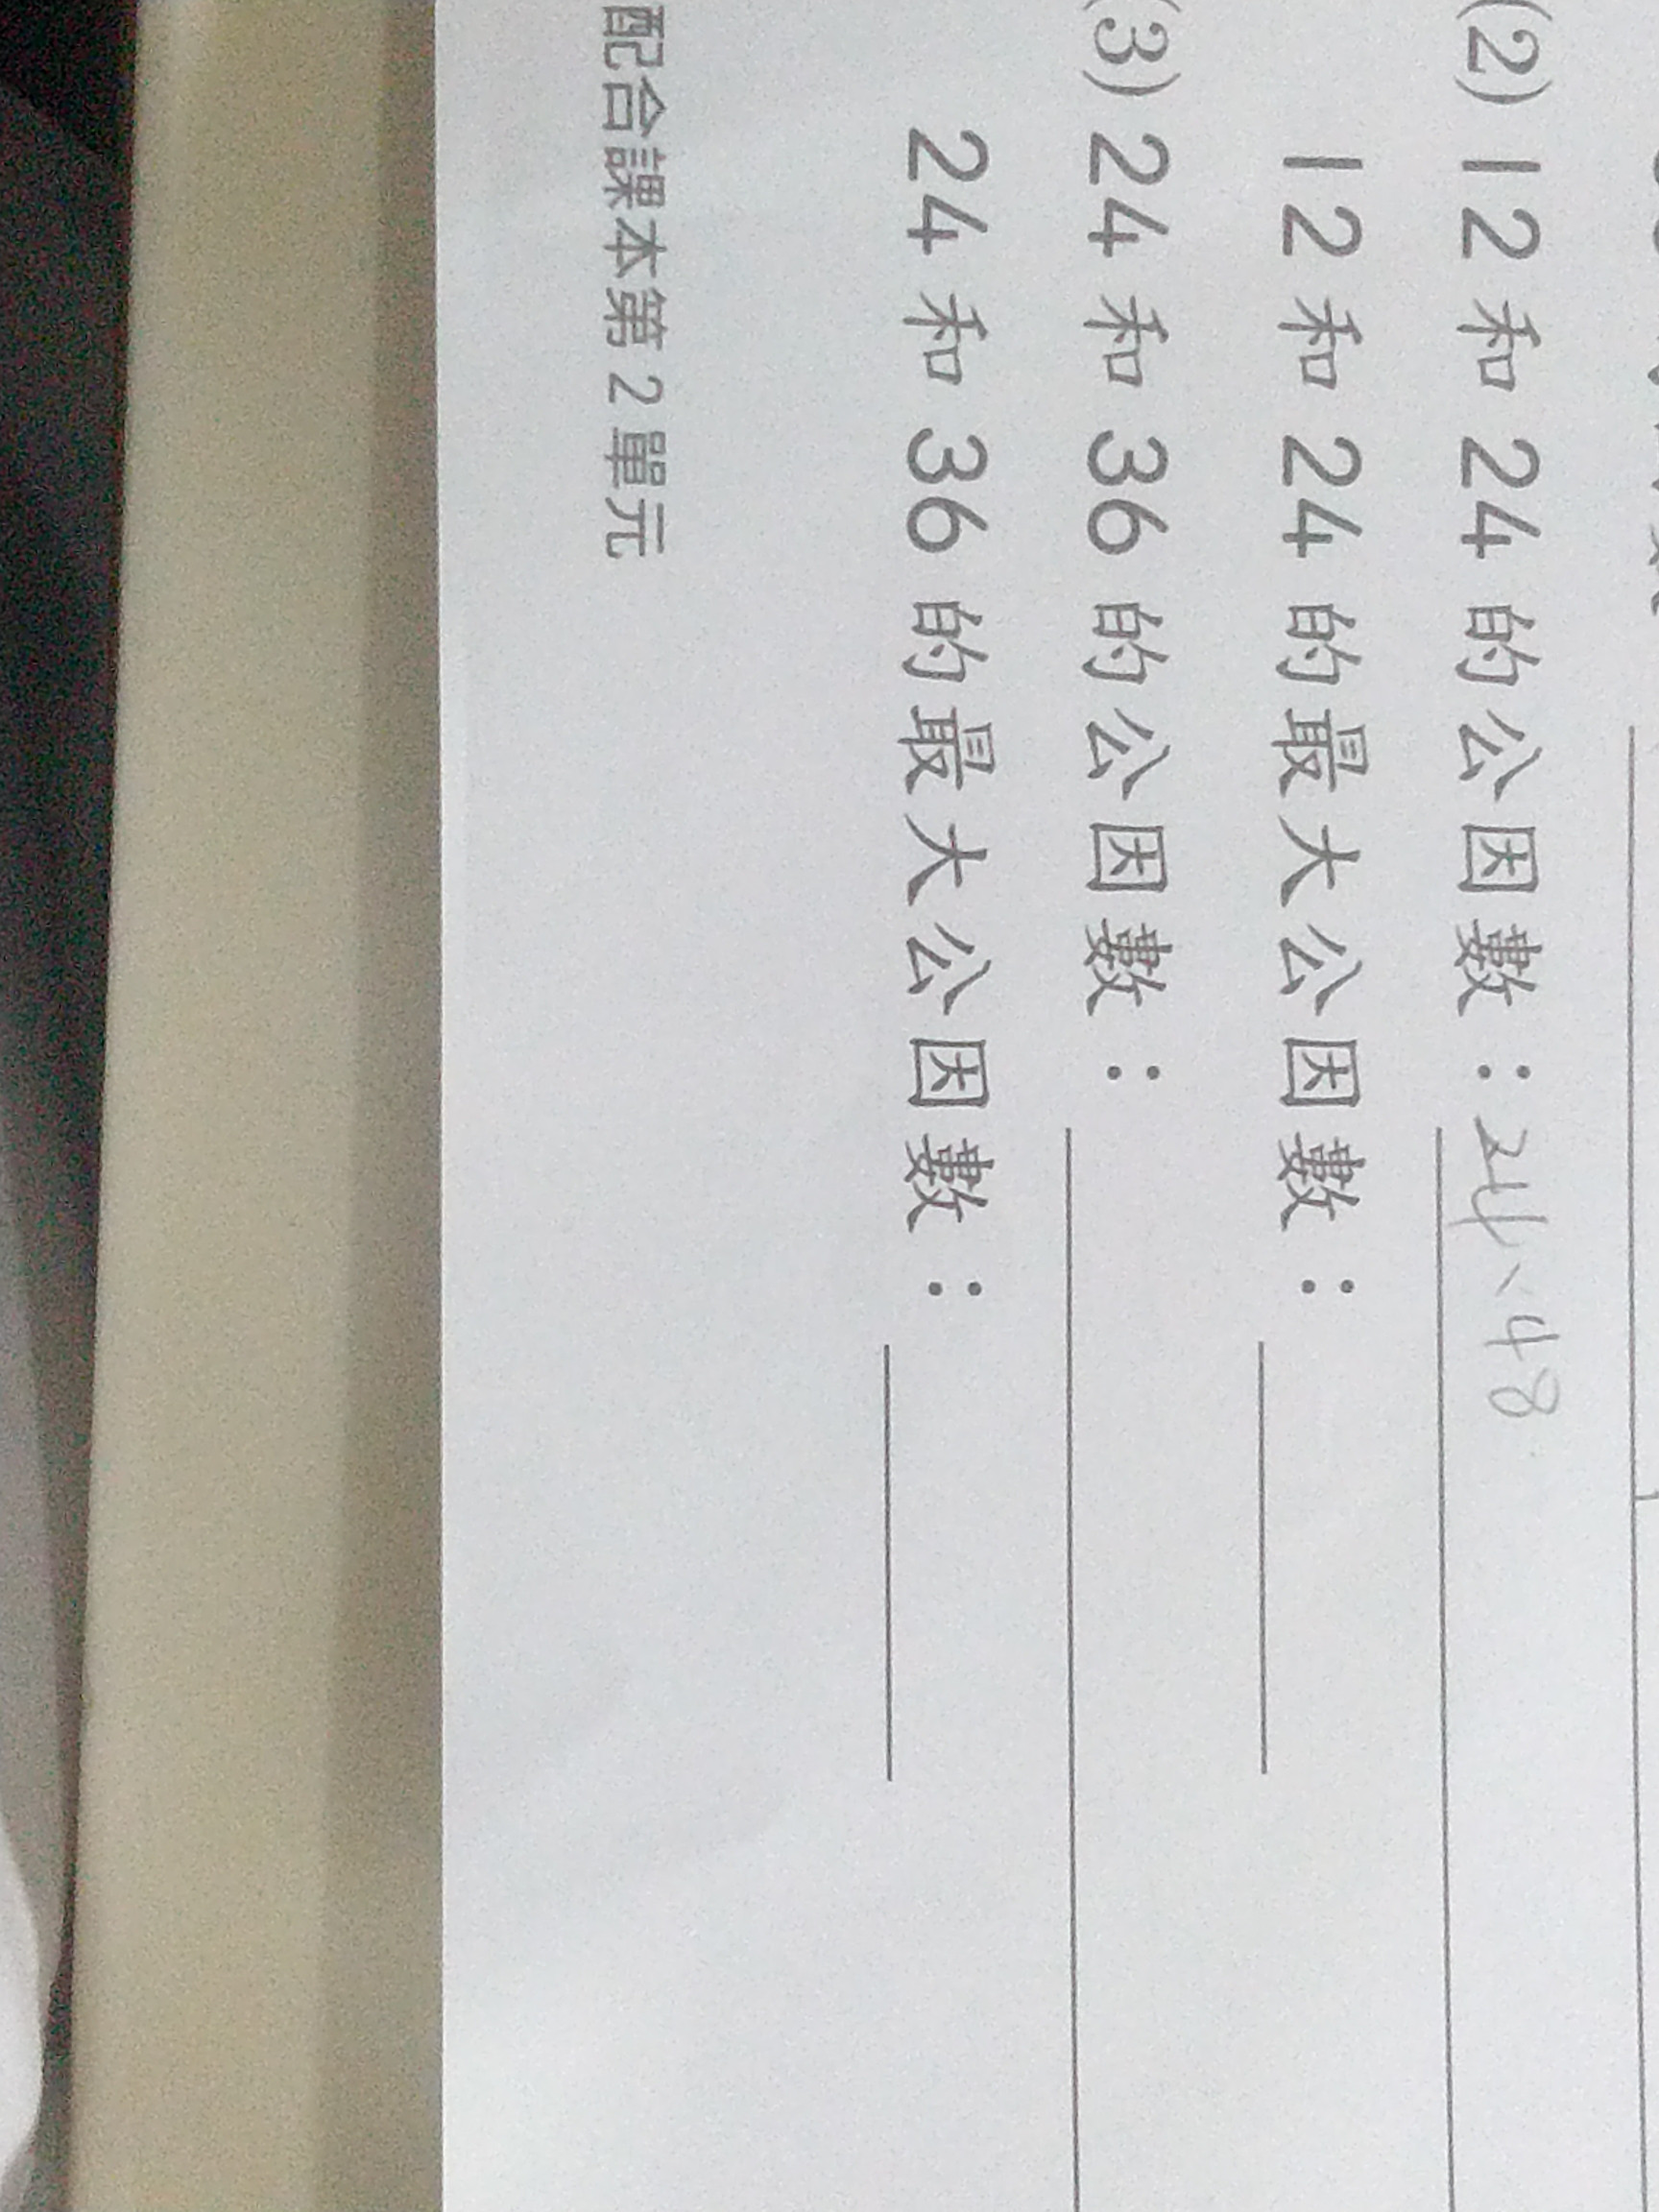 (2) 12 和 24 的公因數：24、48
12 和 24 的最大公因數：
(3) 24 和 36 的公因數：
24 和 36 的最大公因數：
配合課本第 2 單元